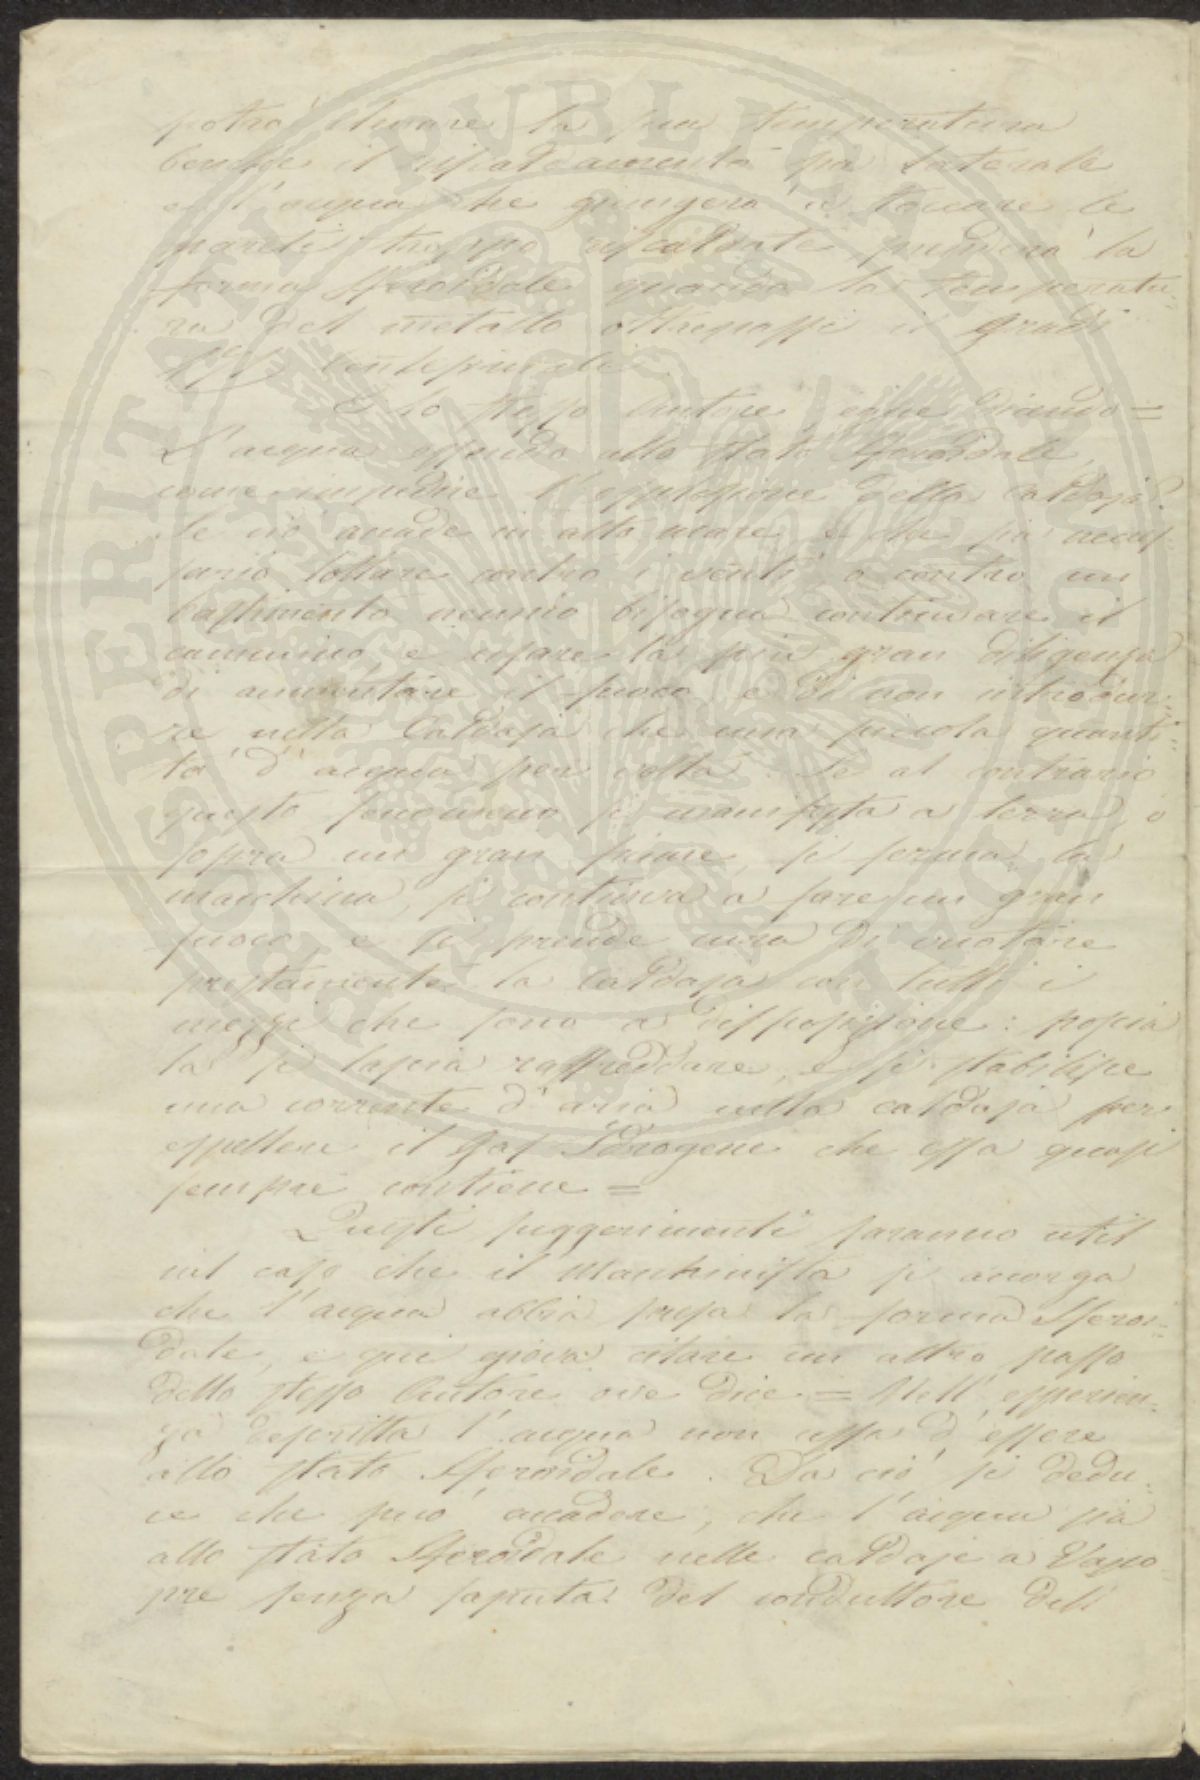 potrà elevare la sua temperatura
benche il riscaldamento sia laterale
e l'acqua che giungerà a toccare le
pareti troppo riscaldate prenderà la
forma Sferoidale quando la temperatu-
ra del metallo oltrepassi i gradi
centesimali.
E lo stesso Autore segue dicendo =
L'acqua essendo allo stato Sferoidale,
come impedire l'esplosione della Caldaja?
Se ciò accade in alto mare, e che sia neces
sario lottare contro i venti, o contro un
bastimento nemico bisogna continuare il
cammino, e usare la più gran diligenza
di aumentare il fuoco, e di non introdur-
re nella Caldaja che una piccola quanti
tà d'acqua per volta. Se al contrario
questo fenomeno si manifesta a terra, o
sopra un gran fiume, si ferma la
macchina, si continua a fare un gran
fuoco, e si prende cura di vuotare
prestamente la Caldaja con tutti i
mezzi che sono a disposizione: poscia
la si lascia raffreddare, e si stabilisce
una corrente d'aria nella caldaja per
espellere il Gas Idrogene che essa quasi
sempre contiene =
Questi suggerimenti saranno utili
nel caso che il Macchinista si accorga
che l'acqua abbia presa la forma Sferoi-
dale, e qui giova citare un altro passo
dello stesso Autore ove dice = Nell'esperien-
za descritta l'acqua non cessa d'essere
allo stato Sferoidale. Da ciò si dedu-
ce che può accadere, che l'acqua sia
allo stato Sferoidale nelle caldaje a Vapo-
re senza saputa del conduttore dell'
PROSPERITATI PUBLICAE AUGENDAE